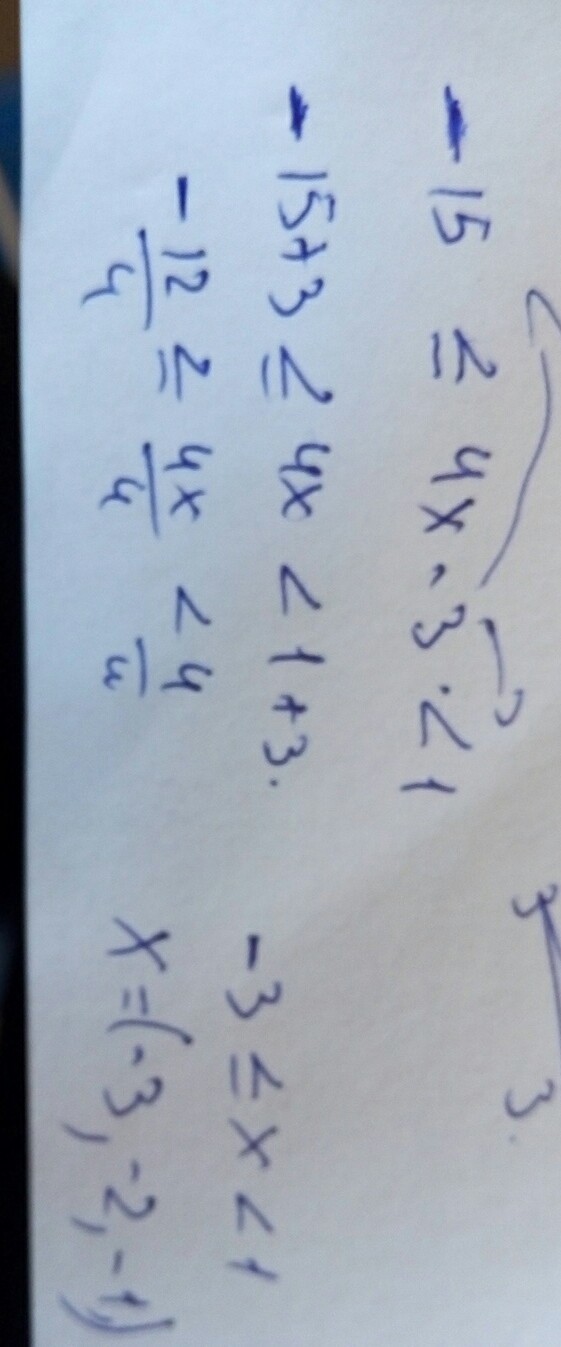 3 3.
-15 ≤ 4x - 3 < 1
-15+3 ≤ 4x < 1+3.
-12/4 ≤ 4x/4 < 4/4
-3 ≤ x < 1
x = (-3, -2, -1)